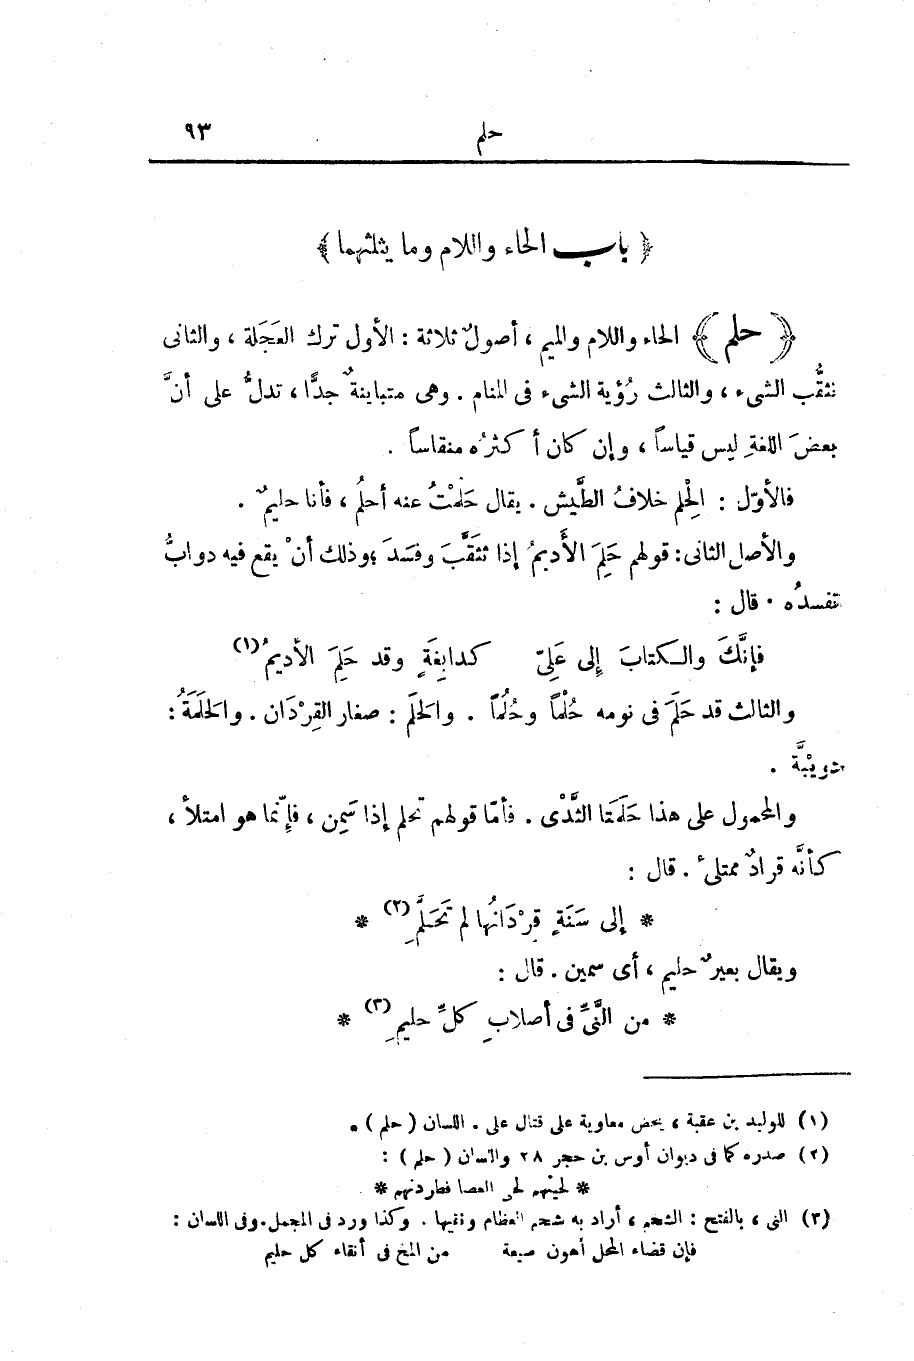 حلم ٩٣
﴿ باب الحاء واللام وما يثلثهما ﴾
﴿ حلم ﴾ الحاء واللام والميم ، أصولٌ ثلاثة : الأول ترك العَجَلة ، والثانى
تثقُّب الشىء ، والثالث رُؤية الشىء فى المنام . وهى متباينةٌ جدًّا ، تدلُّ على أنَّ
بعضَ اللغةِ ليس قياساً ، وإن كان أكثرُه منقاساً .
فالأوّل : الِحْلم خلافُ الطَّيش . يقال حَلُمْتُ عنه أحلُم ، فأنا حليمٌ .
والأصل الثانى : قولهم حَلِمَ الأَديمُ إذا تثقَّبَ وفسَدَ ؛ وذلك أنْ يقع فيه دوابُّ
تفسدُه . قال :
فإنَّكَ والكتابَ إلى عَلِىّ كدابِغةٍ وقد حَلِمَ الأديمُ(١)
والثالث قد حَلَمَ فى نومه حُلْماً وحُلُماً . والحَلَم : صغار القِرْدَان . والحَلَمَةُ :
دويْبَّة .
والمحمول على هذا حَلَمَتا الثَّدْى . فأمّا قولهم تحلم إذا سَمِن ، فإِنّما هو امتلأ ،
كأنَّه قرادٌ ممتلئ . قال :
* إلى سَنَةٍ قِرْدَانُها لم تَحَلَّمِ(٢) *
ويقال بعيرٌ حليم ، أى سمين . قال :
* من النَّىِّ فى أصلابِ كلِّ حليمِ(٣) *
(١) للوليد بن عقبة ، يحض معاوية على قتال على . اللسان ( حلم ) .
(٢) صدره كما فى ديوان أوس بن حجر ٢٨ واللسان ( حلم ) :
* لحينهم لحى العصا فطردنهم *
(٣) النى ، بالفتح : الشحم ، أراد به شحم العظام ونقيها . وكذا ورد فى المجمل . وفى اللسان :
فإن قضاء المحل أهون ضيعة من المخ فى أنقاء كل حليم